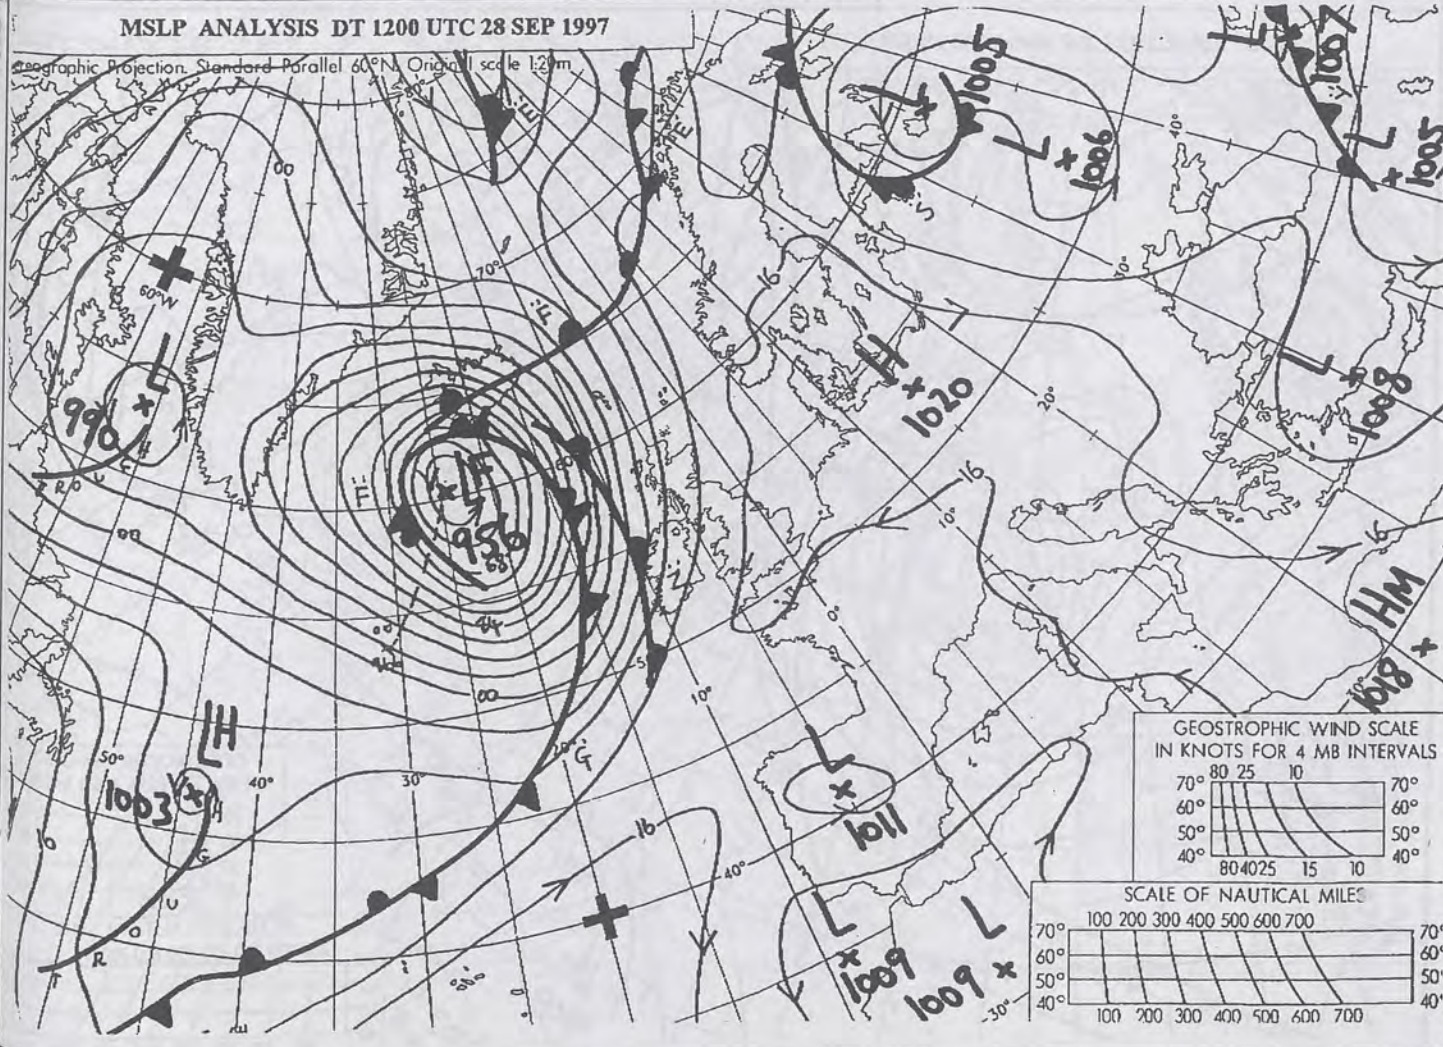 MSLP ANALYSIS DT 1200 UTC 28 SEP 1997
eographic Projection. Standard Parallel 60°N, Original scale 1:20m
L 1007
L 1005
L 1006
L 1005
40°
S
00
70°
60°W
L
990
16
H
1020
L
1008
20°
30°
16
10°
0°
L
956
68
84
00
00
60°
50°
10°
16
HM
1018
LH
1003
50°
40°
30°
20°
G
H
G
U
O
R
T
16
40°
L
1011
L
1009
L
1009
30°
GEOSTROPHIC WIND SCALE
IN KNOTS FOR 4 MB INTERVALS
80 25 10
70° 70°
60° 60°
50° 50°
40° 40°
80 40 25 15 10
SCALE OF NAUTICAL MILES
100 200 300 400 500 600 700
70° 70°
60° 60°
50° 50°
40° 40°
100 200 300 400 500 600 700